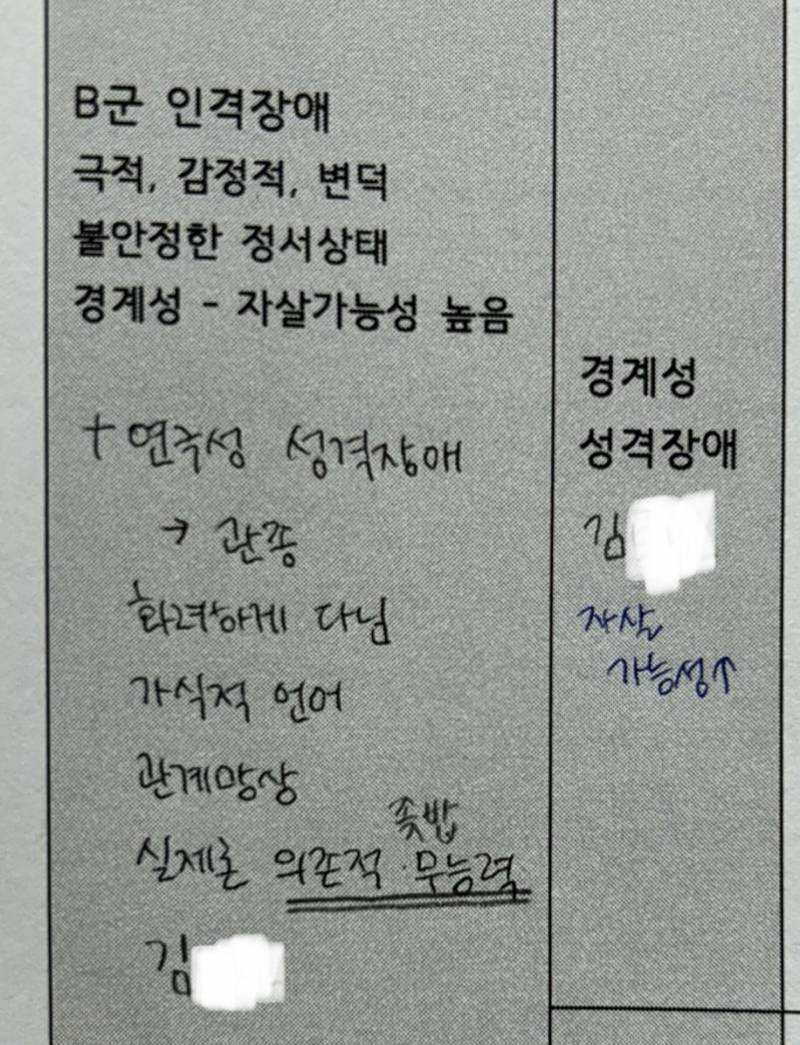 B군 인격장애
극적, 감정적, 변덕
불안정한 정서상태
경계성 - 자살가능성 높음
+ 연극성 성격장애
→ 관종
화려하게 다님
가식적 언어
관계망상
좆밥
실제론 의존적·무능력
김
경계성
성격장애
김
자살
가능성↑